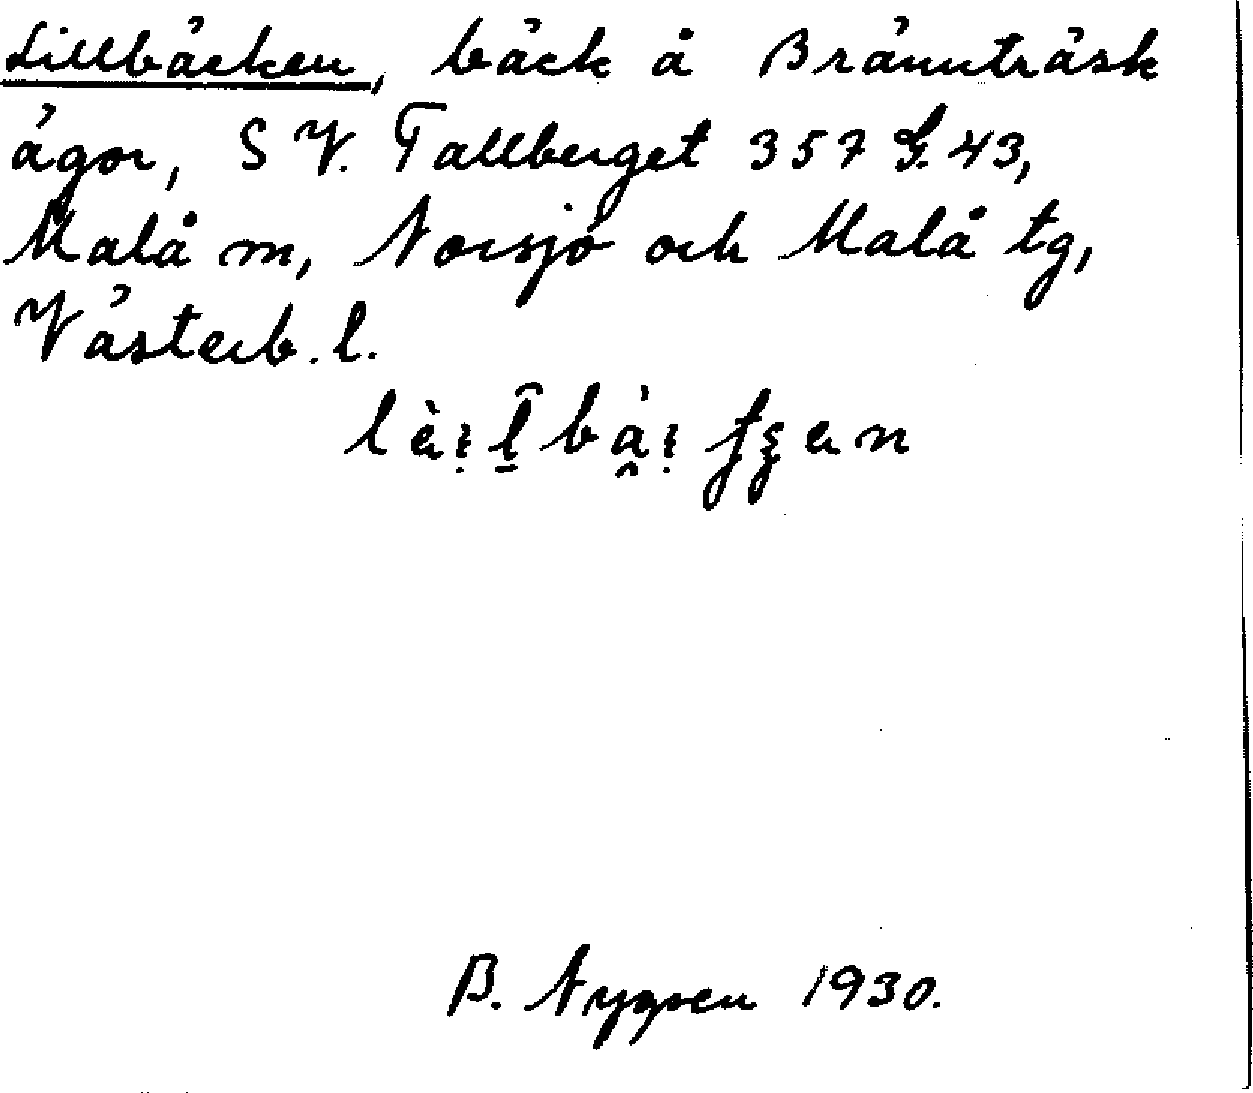 Lillbäcken, bäck å Brännträsk
ägor, S V. Tallberget 357 G. 43,
Malå m, Norsjö och Malå tg,
Västerb. l.
B. Nygren 1930.